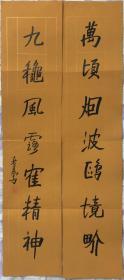 萬頃烟波鷗境界
九穐風露隺精神